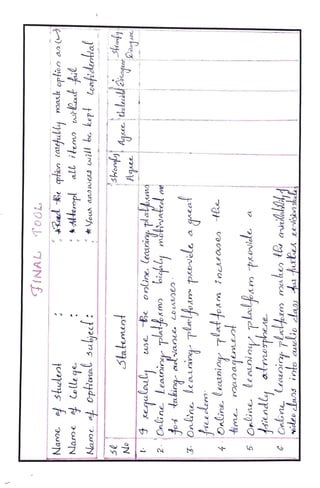 FINAL TOOL
Name of student :
Name of College :
Name of Optional Subject :
* Read the option carefully mark option as (✓)
* Attempt all items without fail
* Your answers will be kept confidential
Sl No
Statement
Strongly Agree
Agree
Disagree
Strongly Disagree
1. I regularly use the online learning platforms
2. Online Learning platforms highly motivated me
for taking advance courses.
3. Online learning platform provide a great
freedom.
4 Online learning platform increases the
time management
5 Online learning platform provide a
friendly atmosphere
6 Online learning platform makes the availability of
video class into audio class for further